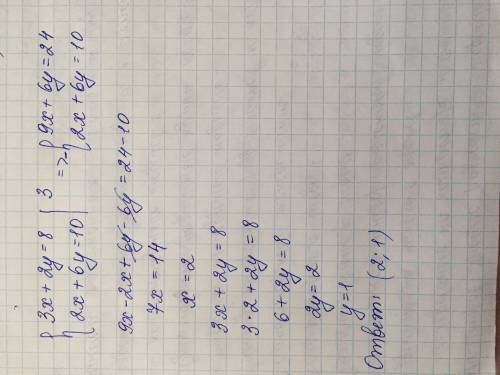 { 3x + 2y = 8 | 3 => { 9x + 6y = 24
{ 2x + 6y = 10 | { 2x + 6y = 10
9x - 2x + 6y - 6y = 24 - 10
7x = 14
x = 2
3x + 2y = 8
3 · 2 + 2y = 8
6 + 2y = 8
2y = 2
y = 1
Ответ: (2; 1)